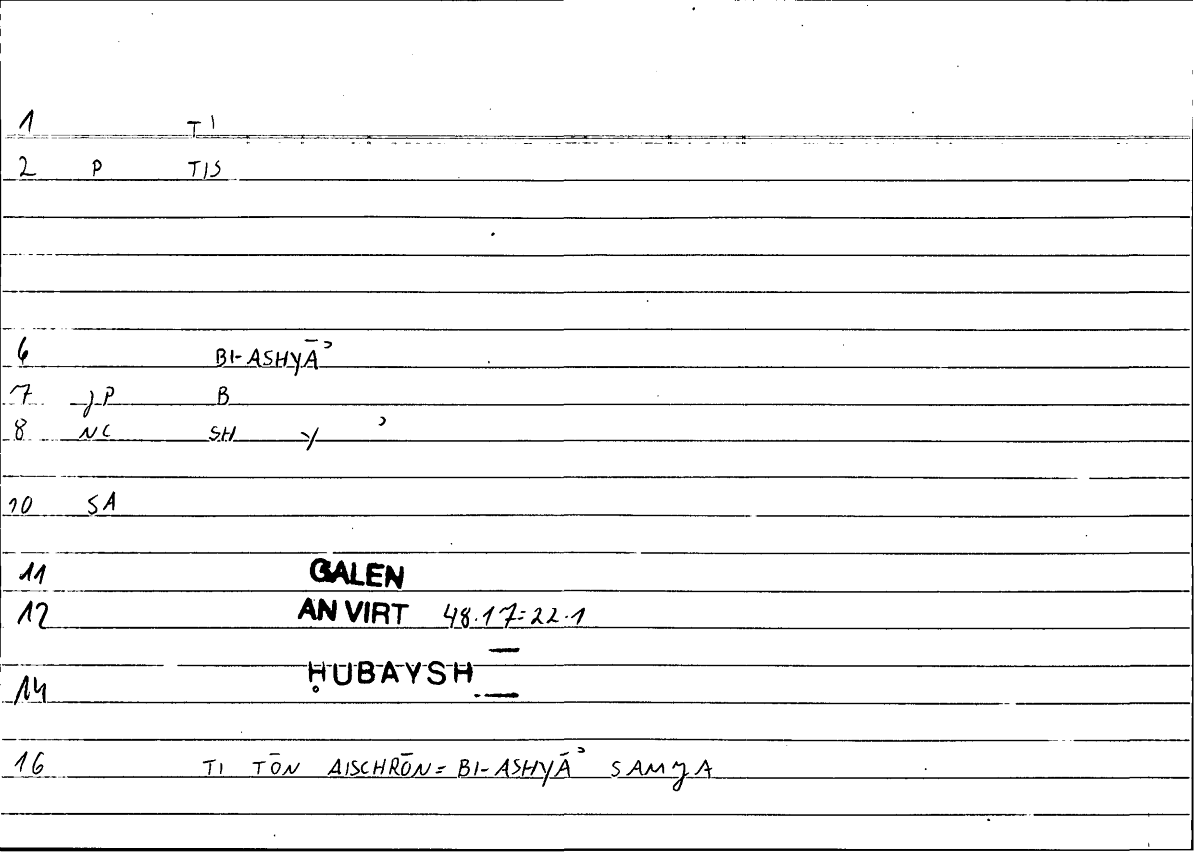 1 TI
2 P TIS
6 BI-ASHYĀʾ
7 JP B
8 NC SH Y ʾ
10 SA
11 GALEN
12 AN VIRT 48.17=22.1
14 ḤUBAYSH
16 TI TŌN AISCHRŌN= BI-ASHYĀʾ SAMJA